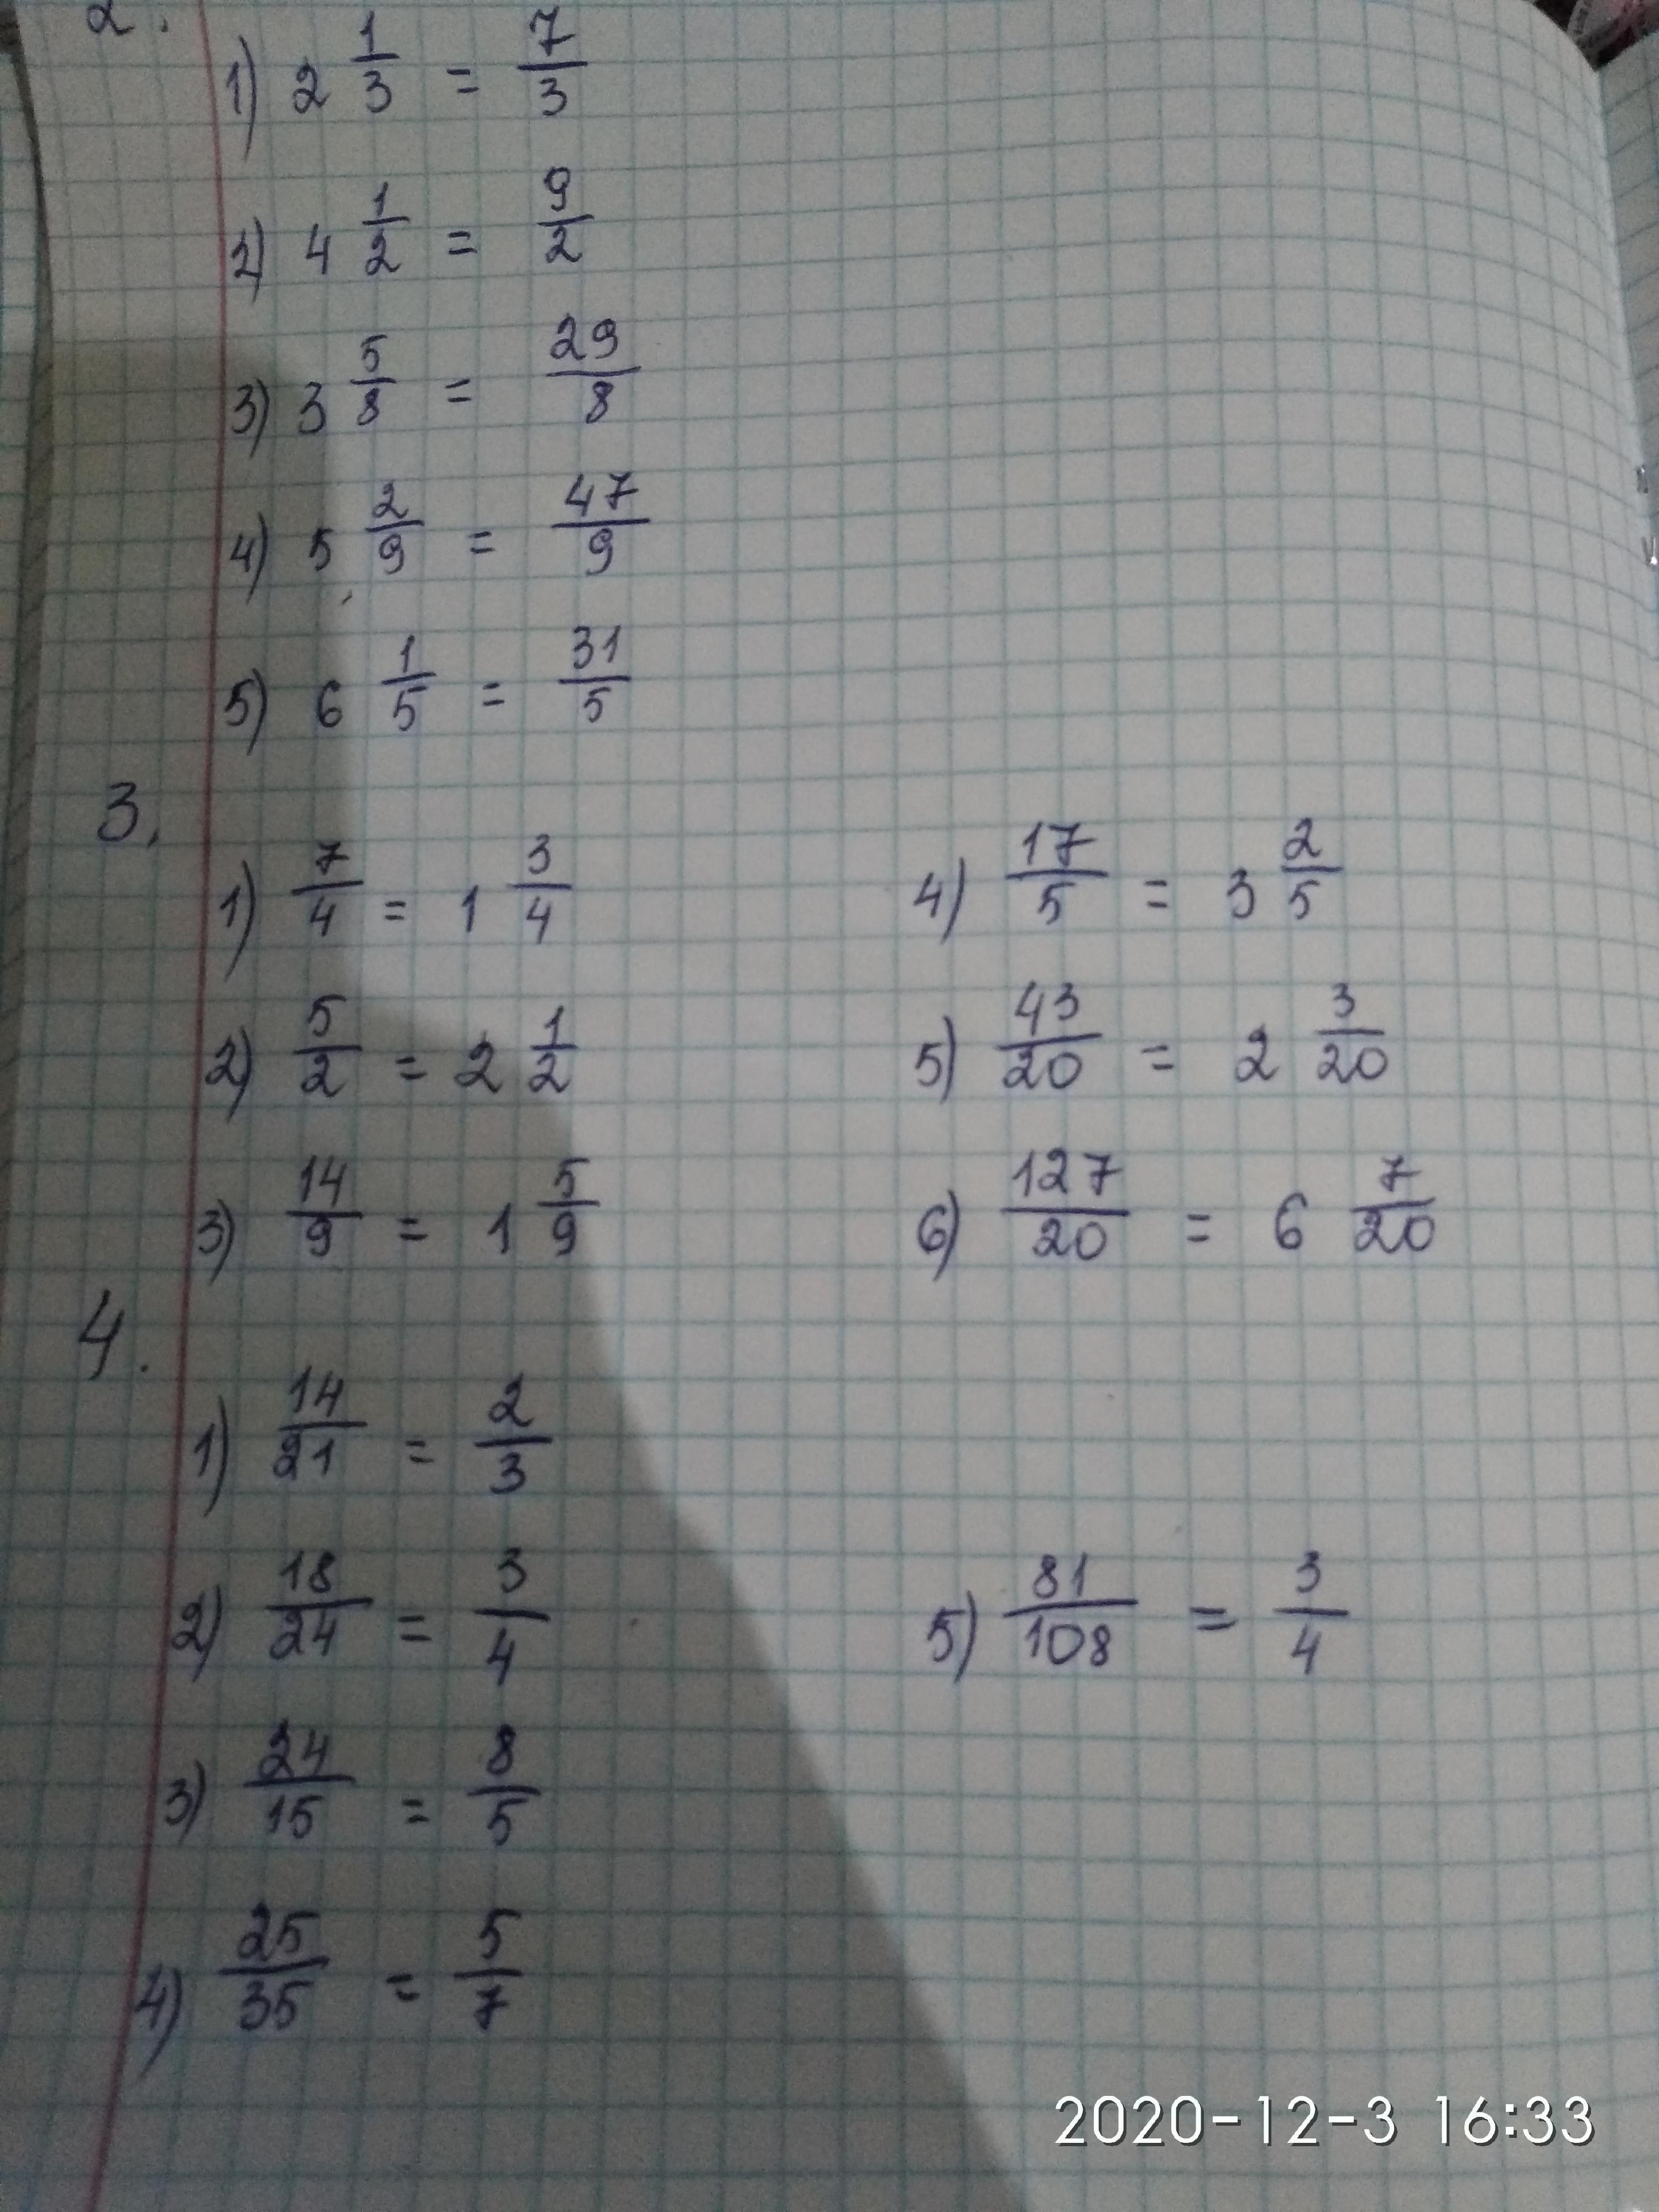 2.
1) 2 1/3 = 7/3
2) 4 1/2 = 9/2
3) 3 5/8 = 29/8
4) 5 2/9 = 47/9
5) 6 1/5 = 31/5
3.
1) 7/4 = 1 3/4
2) 5/2 = 2 1/2
3) 14/9 = 1 5/9
4) 17/5 = 3 2/5
5) 43/20 = 2 3/20
6) 127/20 = 6 7/20
4.
1) 14/21 = 2/3
2) 18/24 = 3/4
3) 24/15 = 8/5
4) 25/35 = 5/7
5) 81/108 = 3/4
2020-12-3 16:33